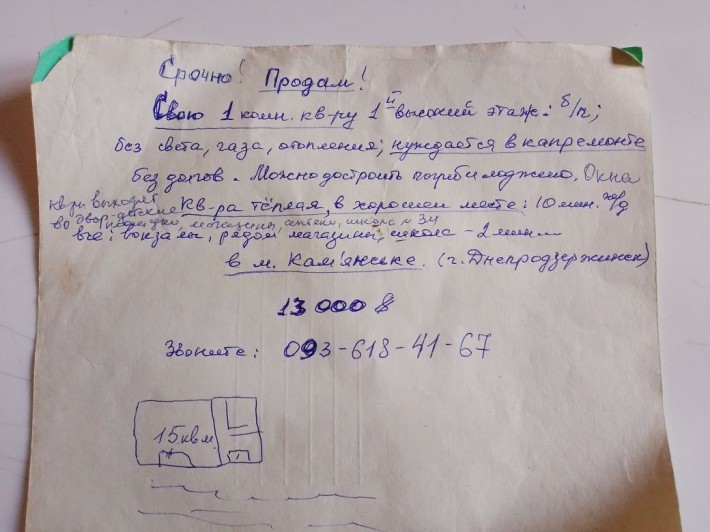 Срочно! Продам!
Свою 1 комн. кв-ру 1й высокий этаж: б/п;
без света, газа, отопления; нуждается в капремонте
без долгов. Можно достроить погреб и лоджию. Окна
кв-ры выходят
во двор, детские
КВ-ра тёплая, в хорошем месте: 10 мин. ход
площадки, магазины, аптеки, школа № 34
все: вокзалы, рядом магазины, школа - 2 мин
в м. Кам'янське. (г. Днепродзержинск)
13 000 $
Звоните: 093-613-41-67
15 кв м